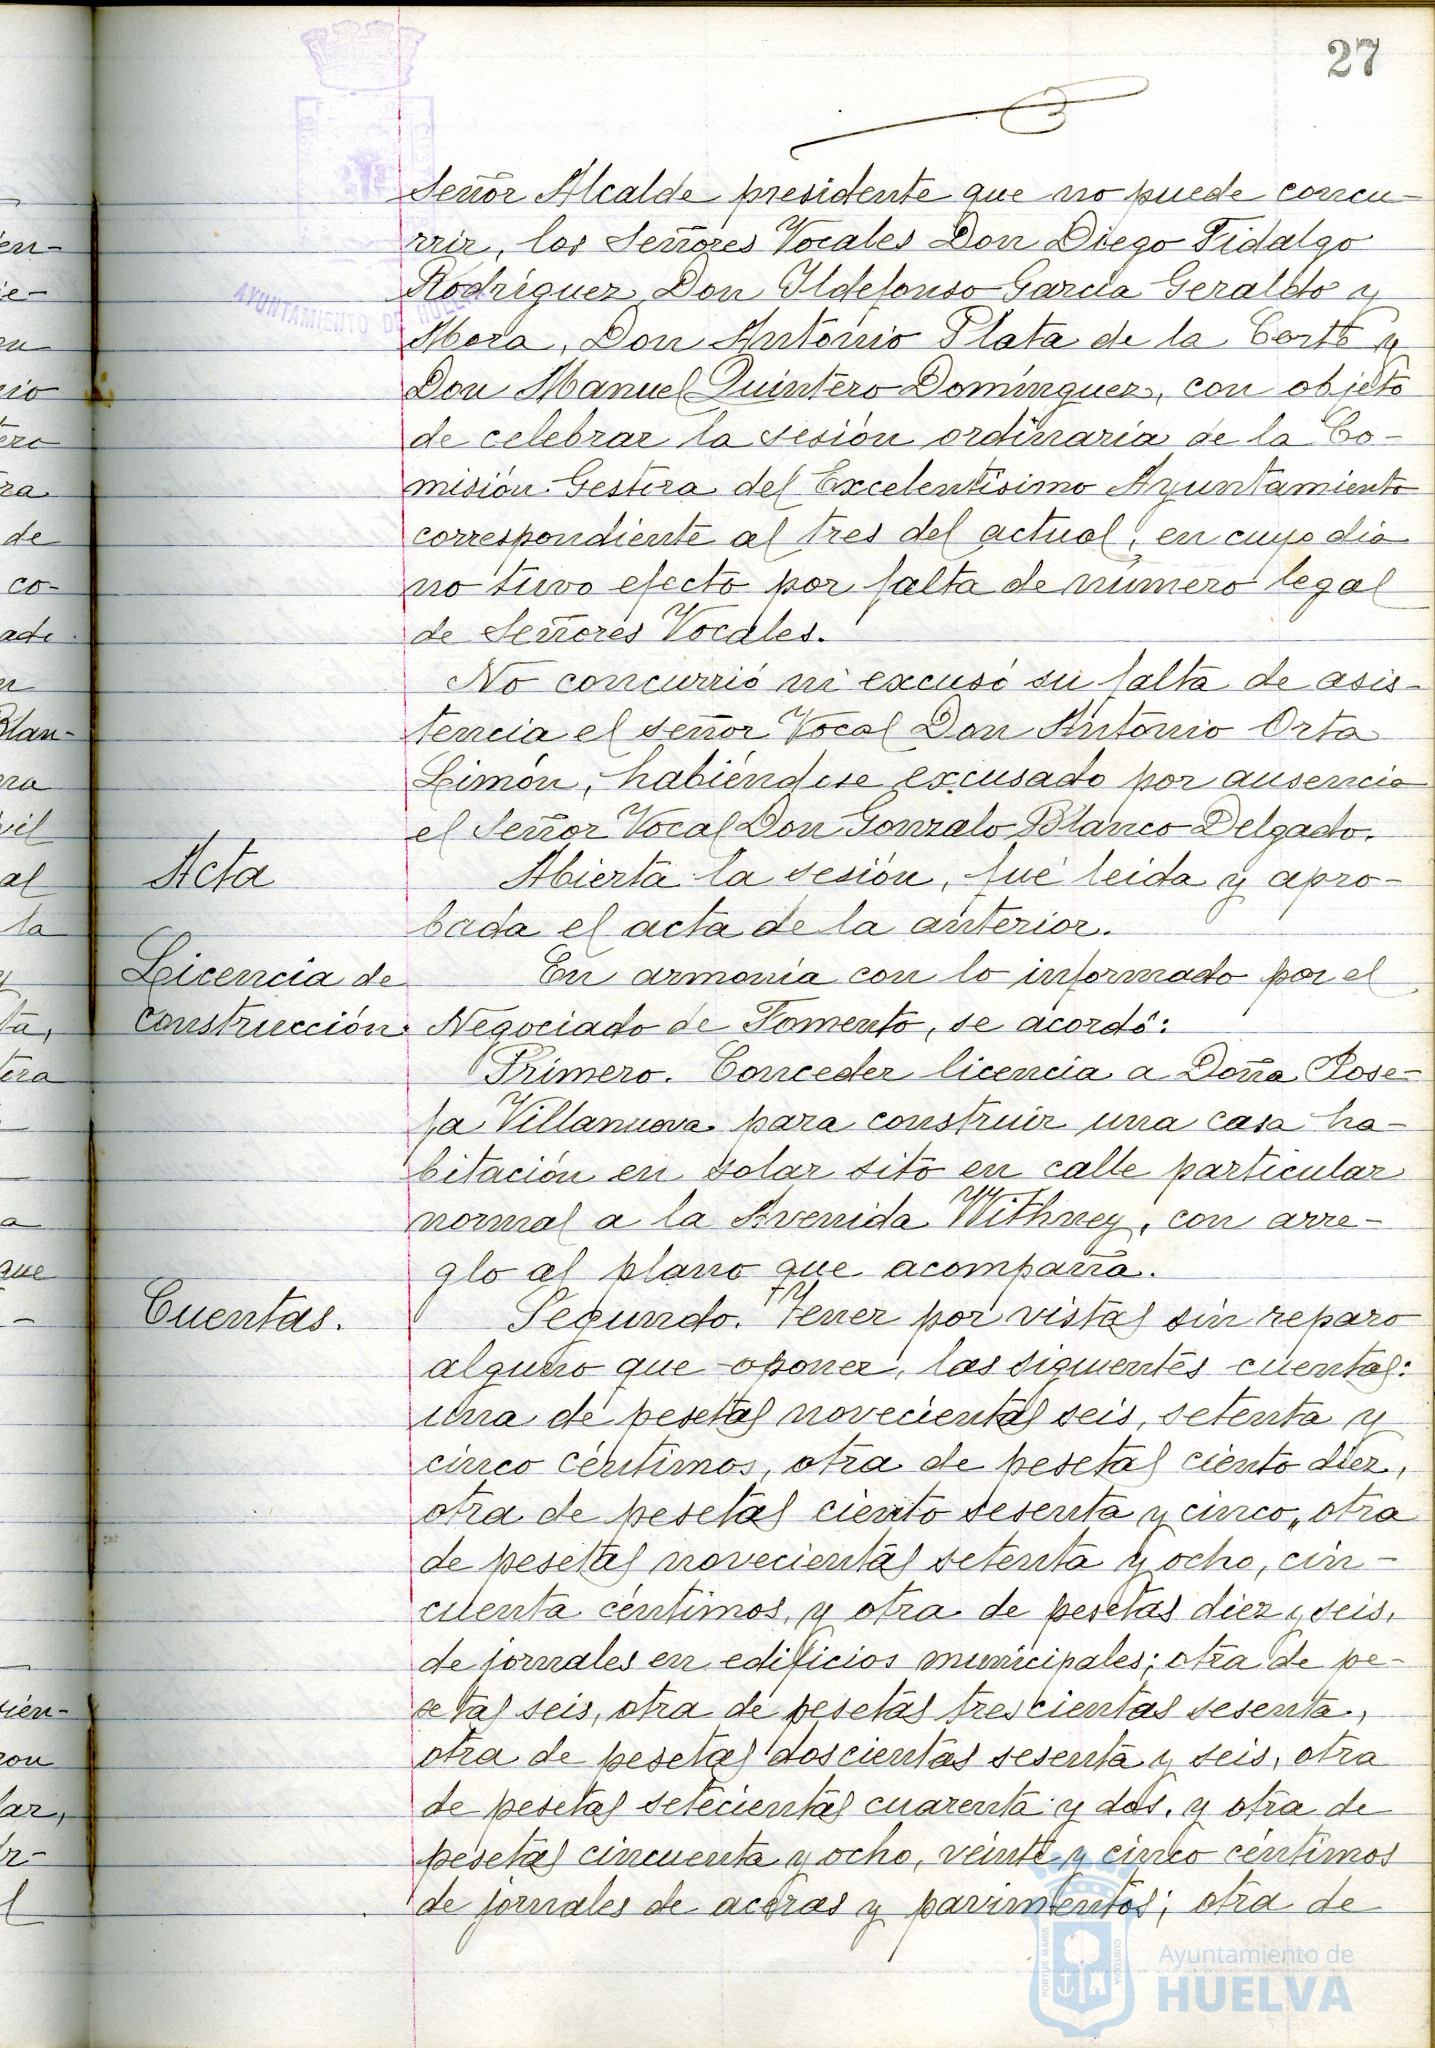 27
Señor Alcalde presidente que no puede concu-
rrir, los Señores Vocales Don Diego Fidalgo
Rodríguez, Don Ildefonso García Geraldo y
Mora, Don Antonio Plata de la Corte y
Don Manuel Quintero Domínguez, con objeto
de celebrar la sesión ordinaria de la Co-
misión Gestora del Excelentísimo Ayuntamiento
correspondiente al tres del actual, en cuyo dia
no tuvo efecto por falta de número legal
de Señores Vocales.
No concurrió ni excusó su falta de asis-
tencia el señor Vocal Don Antonio Orta
Limón, habiéndose excusado por ausencia
el Señor Vocal Don Gonzalo Blanco Delgado.
Acta
Abierta la sesión, fué leida y apro-
bada el acta de la anterior.
Licencia de
construcción.
En armonía con lo informado por el
Negociado de Fomento, se acordó:
Primero. Conceder licencia a Doña Jose-
fa Villanueva para construir una casa ha-
bitación en solar sito en calle particular
normal a la Avenida Withney, con arre-
glo al plano que acompaña.
Cuentas.
Segundo. Tener por vistas sin reparo
alguno que oponer, las siguientes cuentas:
una de pesetas novecientas seis, setenta y
cinco céntimos, otra de pesetas ciento diez,
otra de pesetas ciento sesenta y cinco, otra
de pesetas novecientas setenta y ocho, cin-
cuenta céntimos, y otra de pesetas diez y seis,
de jornales en edificios municipales; otra de pe-
setas seis, otra de pesetas trescientas sesenta,
otra de pesetas doscientas sesenta y seis, otra
de pesetas setecientas cuarenta y dos, y otra de
pesetas cincuenta y ocho, veinte y cinco céntimos
de jornales de aceras y pavimentos; otra de
AYUNTAMIENTO DE HUELVA
PORTUS MARIS
CUSTODIA
Ayuntamiento de
HUELVA